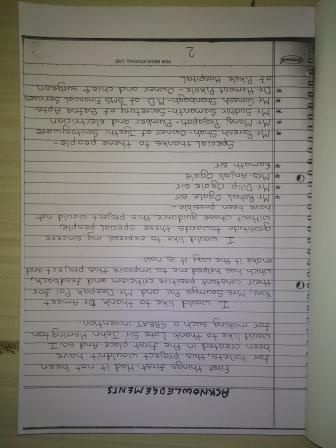 ACKNOWLEDGEMENTS
First things first. Had it not been
for toilets this project wouldn't have
been created in the first place. And so, I
would like to thank Late Sir John Harington
for making such a GREAT invention
I would like to thank Dr. Ameet
Kini, Mrs. Soumya Pai and Mr Deepak Pai for
their constant positive criticism and feedback,
which has helped me to improve this project and
make it the way it is now.
I would like to express my sincere
gratitude towards these special people,
without whose guidance this project would not
have been possible-
* Mr Rahul Ogale sir
* Mr Dilip Ogale sir
* Mrs. Anjali Ogale
* Kamath sir
Special thanks to these people-
* Mr Paresh Shah- Owner of Jyothi Sanitaryware
* Mr Manoj Prajapati- Plumber and electrician
* Mr Sudhir Samant- Secretary of Ratna Apts
* Mr Ganesh Shanbhag- M.D of SMS Financial Services
* Dr Hemant Pikale- Owner and chief surgeon
at Pikale Hospital
FOR EDUCATIONAL USE
2